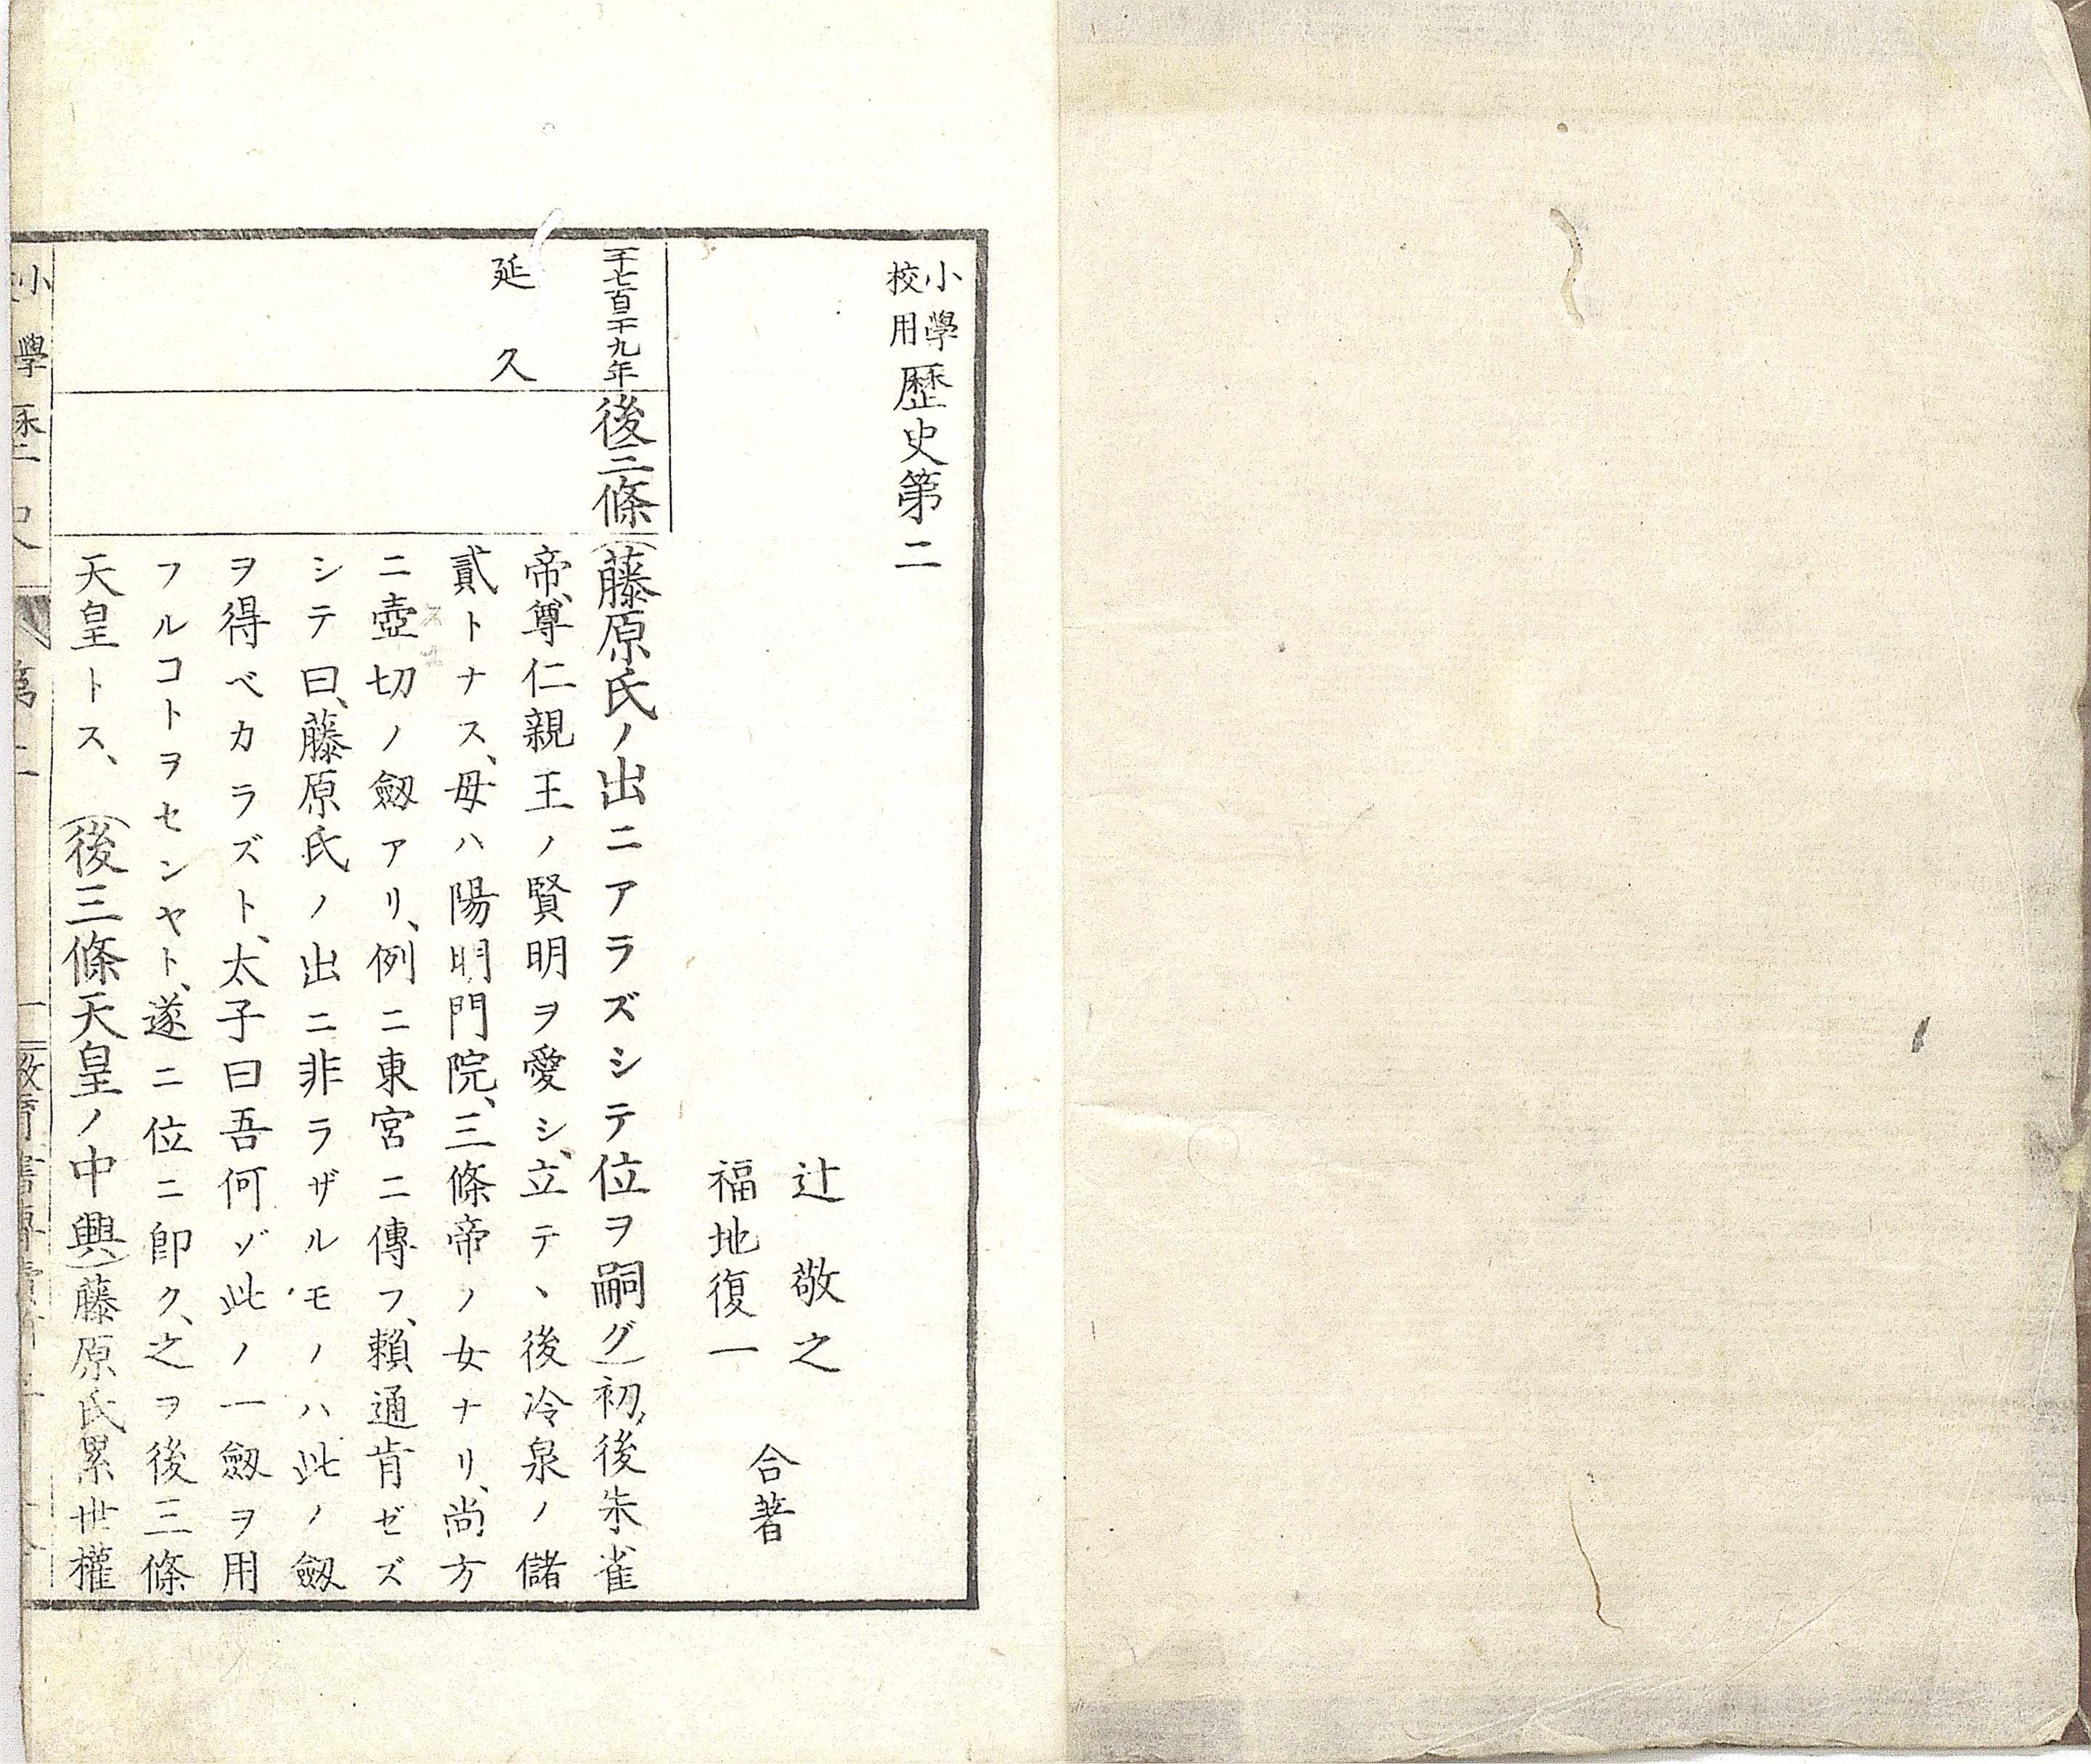 小學校用歷史第二
辻敬之
福地復一
合著
千七百二十九年
後三條
(藤原氏ノ出ニアラズシテ位ヲ嗣グ)初、後朱雀
延久
帝、尊仁親王ノ賢明ヲ愛シ、立テヽ後冷泉ノ儲
貳トナス、母ハ陽明門院、三條帝ノ女ナリ、尚方
ニ壺切ノ劔アリ、例ニ東宮ニ傳フ、賴通肯ゼズ
シテ曰、藤原氏ノ出ニ非ラザルモノハ此ノ劔
ヲ得ベカラズト、太子曰吾何ゾ此ノ一劔ヲ用
フルコトヲセンヤト、遂ニ位ニ卽ク、之ヲ後三條
天皇トス、(後三條天皇ノ中興)藤原氏累世權
小學歷史 第二 一